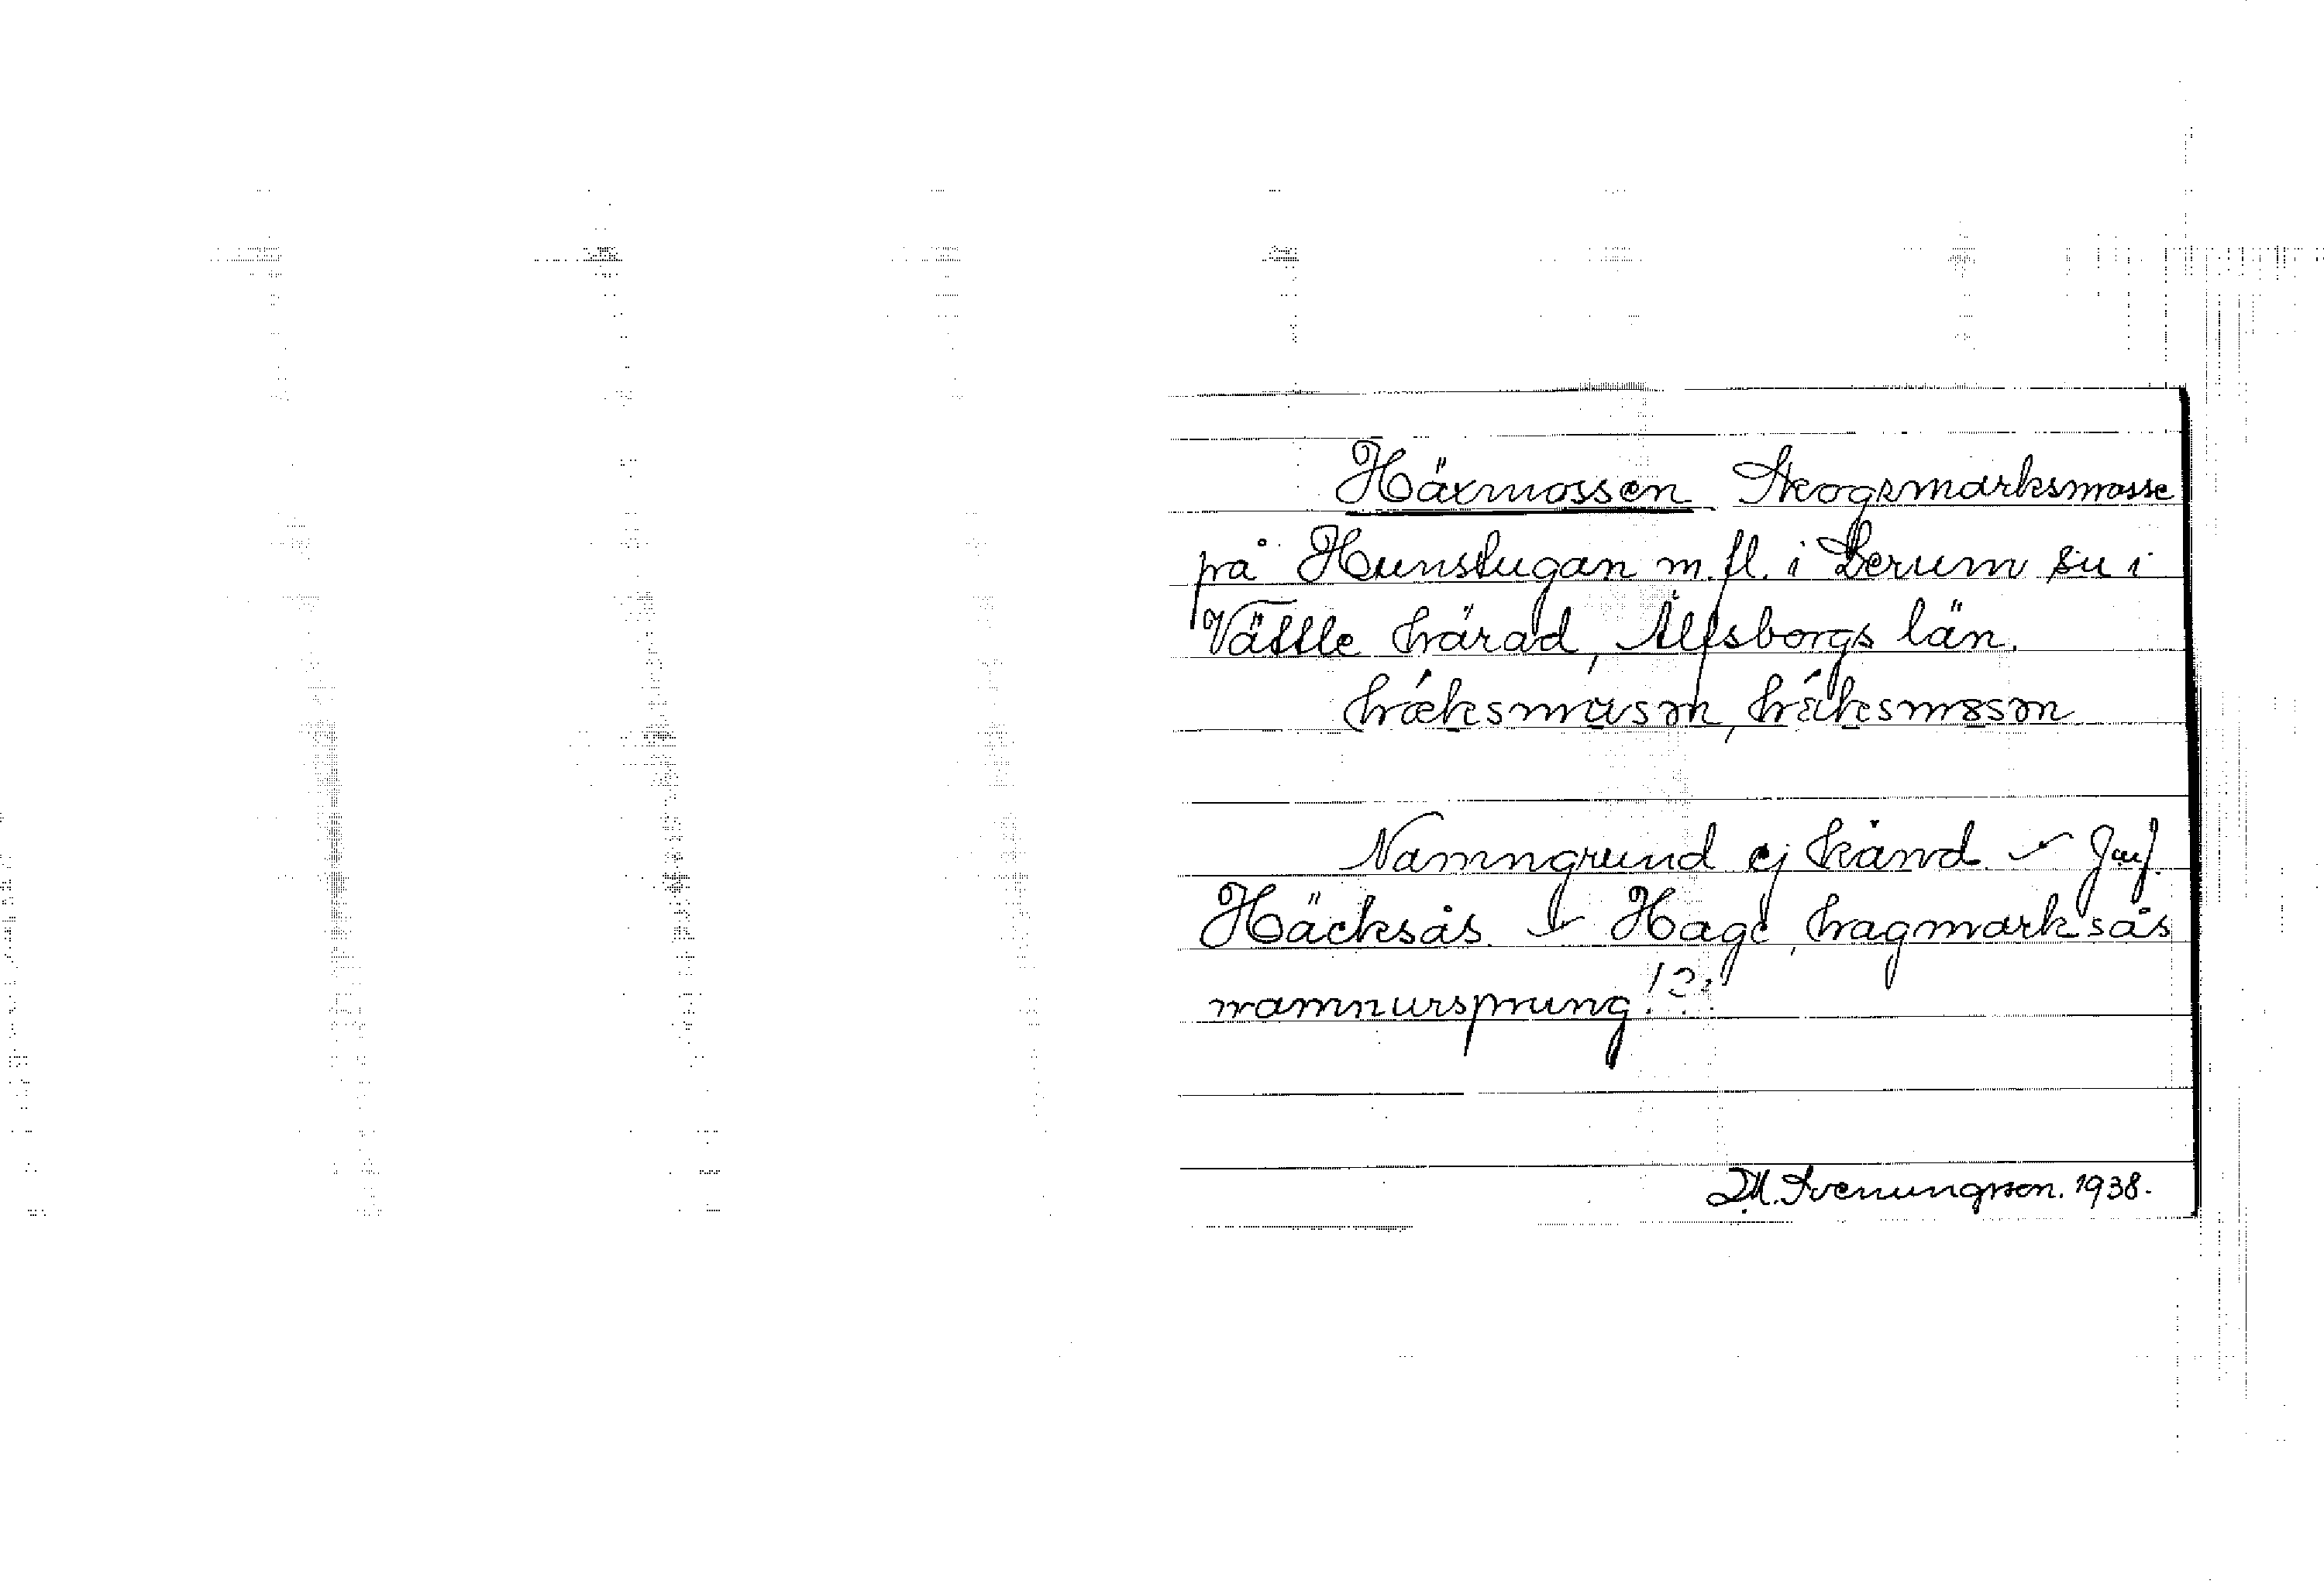 Häxmossen Skogsmarksmosse
på Hunstugan m.fl. i Lerum sn i
Vättle härad, Älfsborgs län.
Namngrund ej känd. – Jmf.
Häcksås. – Hage, hagmarksås
namnursprung!?
M. Svenungsson. 1938.